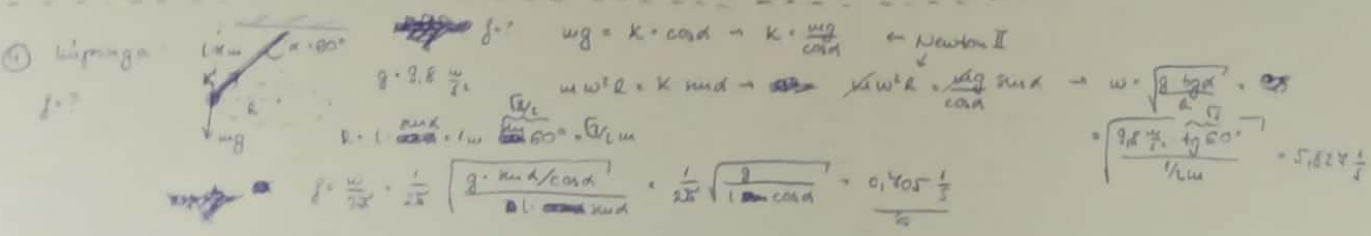 ④ kúpinga l=1m α=60° f=? mg = K · cosα → K = mg/cosα ← Newton II
f=? K g = 9,8 m/s² mω²R = K sinα → mω²R = mg/cosα sinα → ω = √(g tgα / R) =
R mg R = l · sinα = 1m 60° = √3/2 m = √(9,8 m/s² · tg 60° / 1/2 m) = 5,827 1/s
f = ω/2π = 1/2π √(g · sinα/cosα / l · sinα) = 1/2π √(g / l cosα) = 0,705 1/s